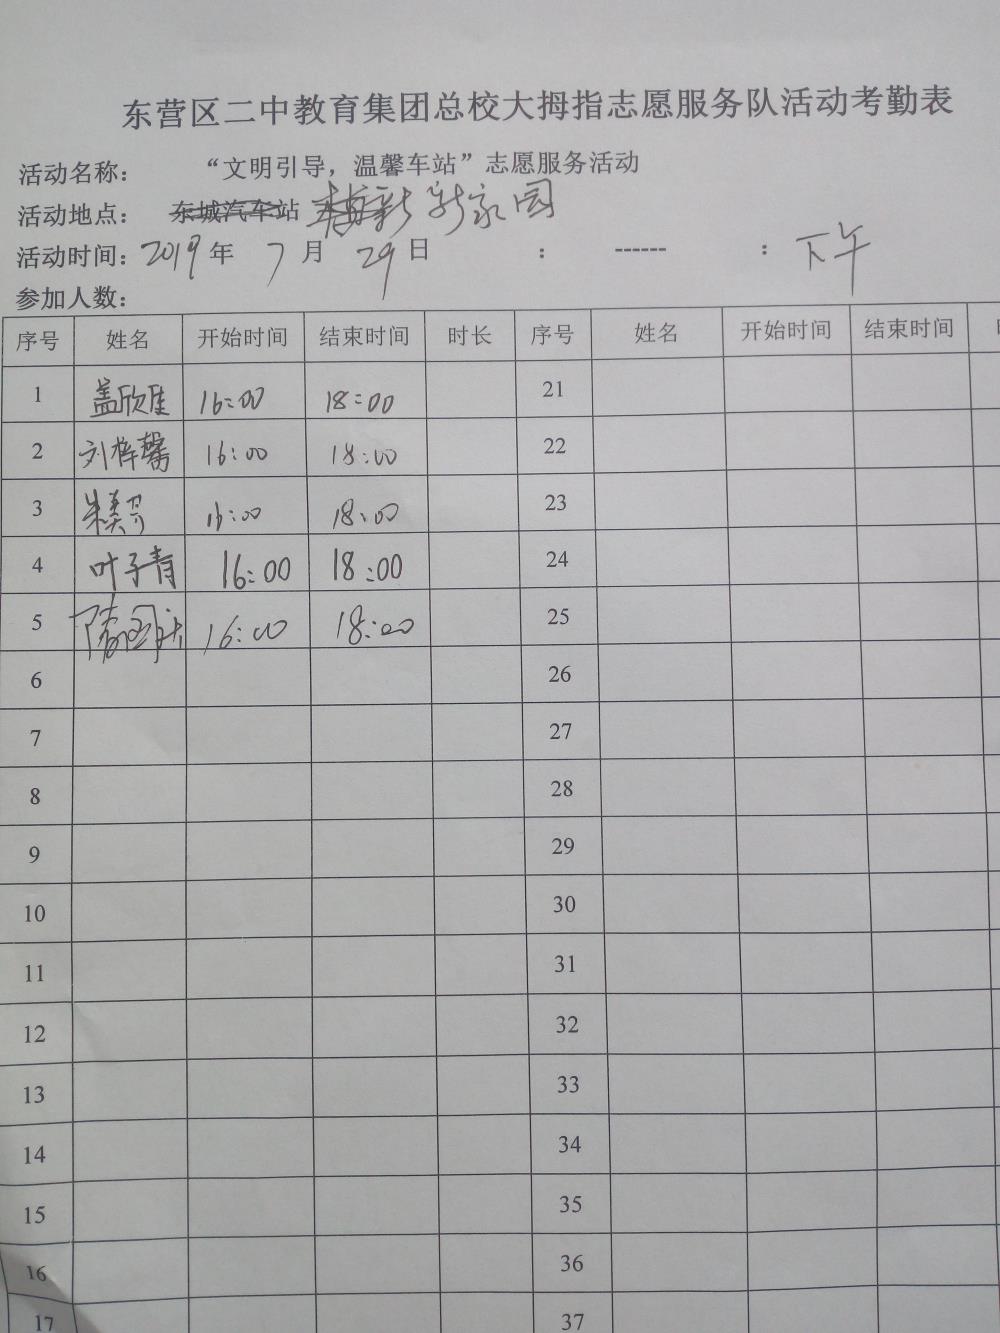 东营区二中教育集团总校大拇指志愿服务队活动考勤表
活动名称： “文明引导，温馨车站”志愿服务活动
活动地点： 东城汽车站 新家园
活动时间：2019年 7 月 29 日 ： ------ ： 下午
参加人数：
序号 姓名 开始时间 结束时间 时长 序号 姓名 开始时间 结束时间
1 盖欣佳 16:00 18:00 21
2 刘梓馨 16:00 18:00 22
3 16:00 18:00 23
4 叶子青 16:00 18:00 24
5 16:00 18:00 25
6 26
7 27
8 28
9 29
10 30
11 31
12 32
13 33
14 34
15 35
16 36
17 37